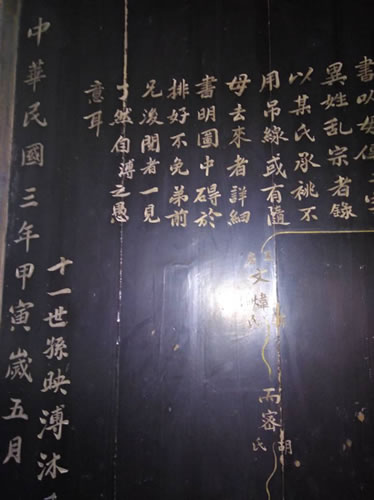 書以
異姓乱宗者錄
以某氏承祧不
用吊線或有隨
母去來者詳細
書明圖中碍於
排好不免弟前
兄後閱者一見
了然自溥之愚
意耳
而密
胡氏
文煒
十一世孫映溥沐
中華民國三年甲寅歲五月